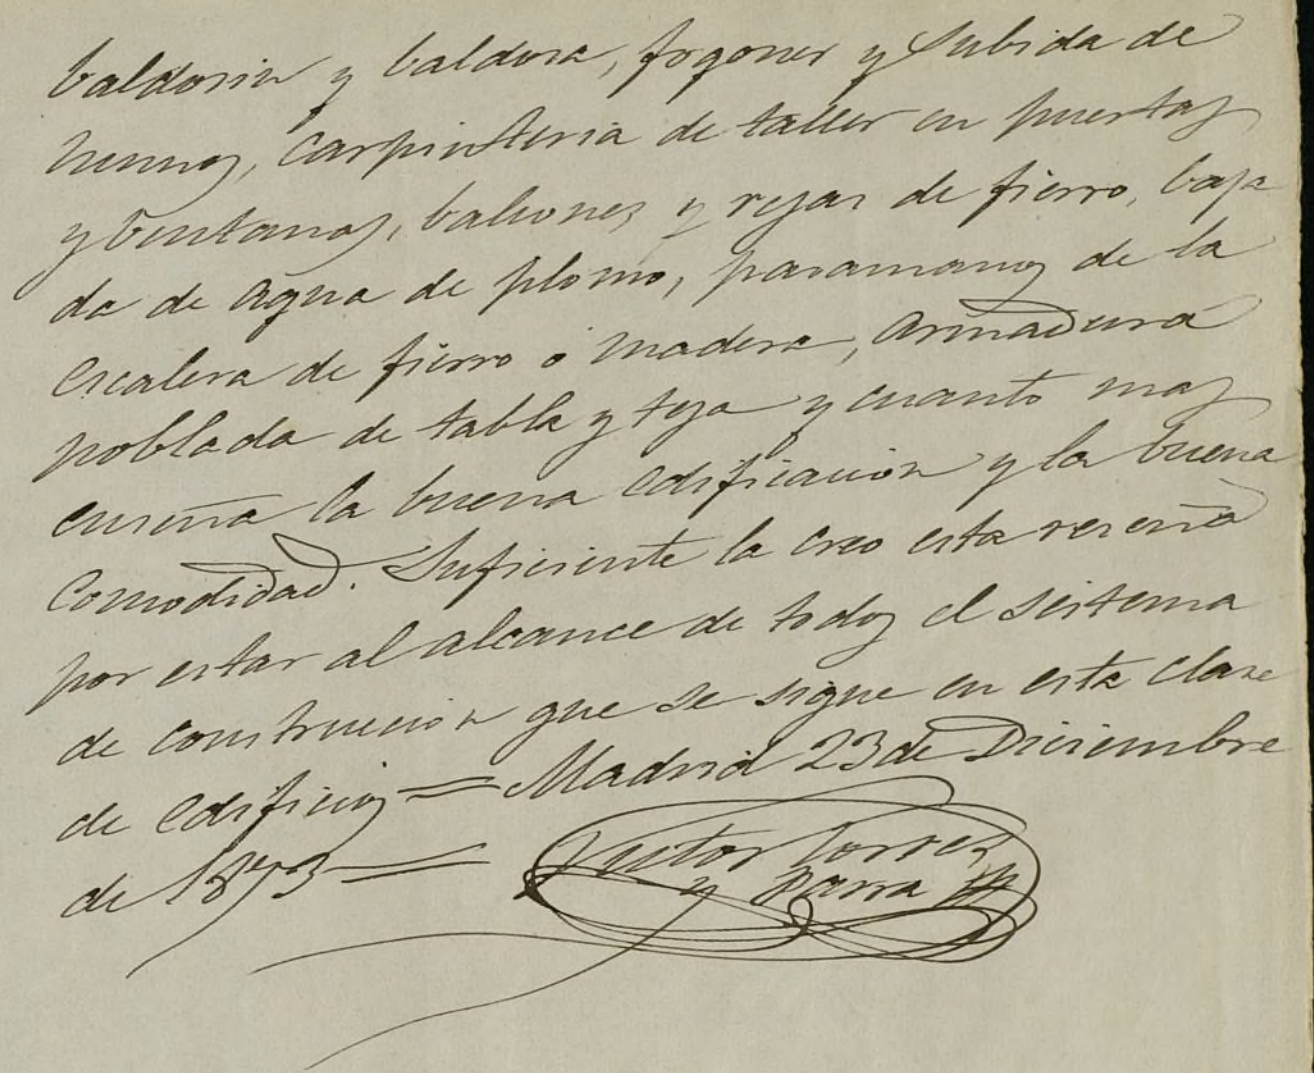 baldosin y baldosa, fogones y subida de
humos, carpinteria de taller en puertas
y ventanas, balcones y rejas de fierro, baja
da de agua de plomo, pasamanos de la
escalera de fierro ó madera, armadura
poblada de tabla y teja y cuanto mas
enseña la buena edificacion y la buena
comodidad. Suficiente la creo esta reseña
por estar al alcance de todos el sistema
de construccion que se sigue en esta clase
de edificios = Madrid 23 de Diciembre
de 1873 =
Victor Torres
y Parra